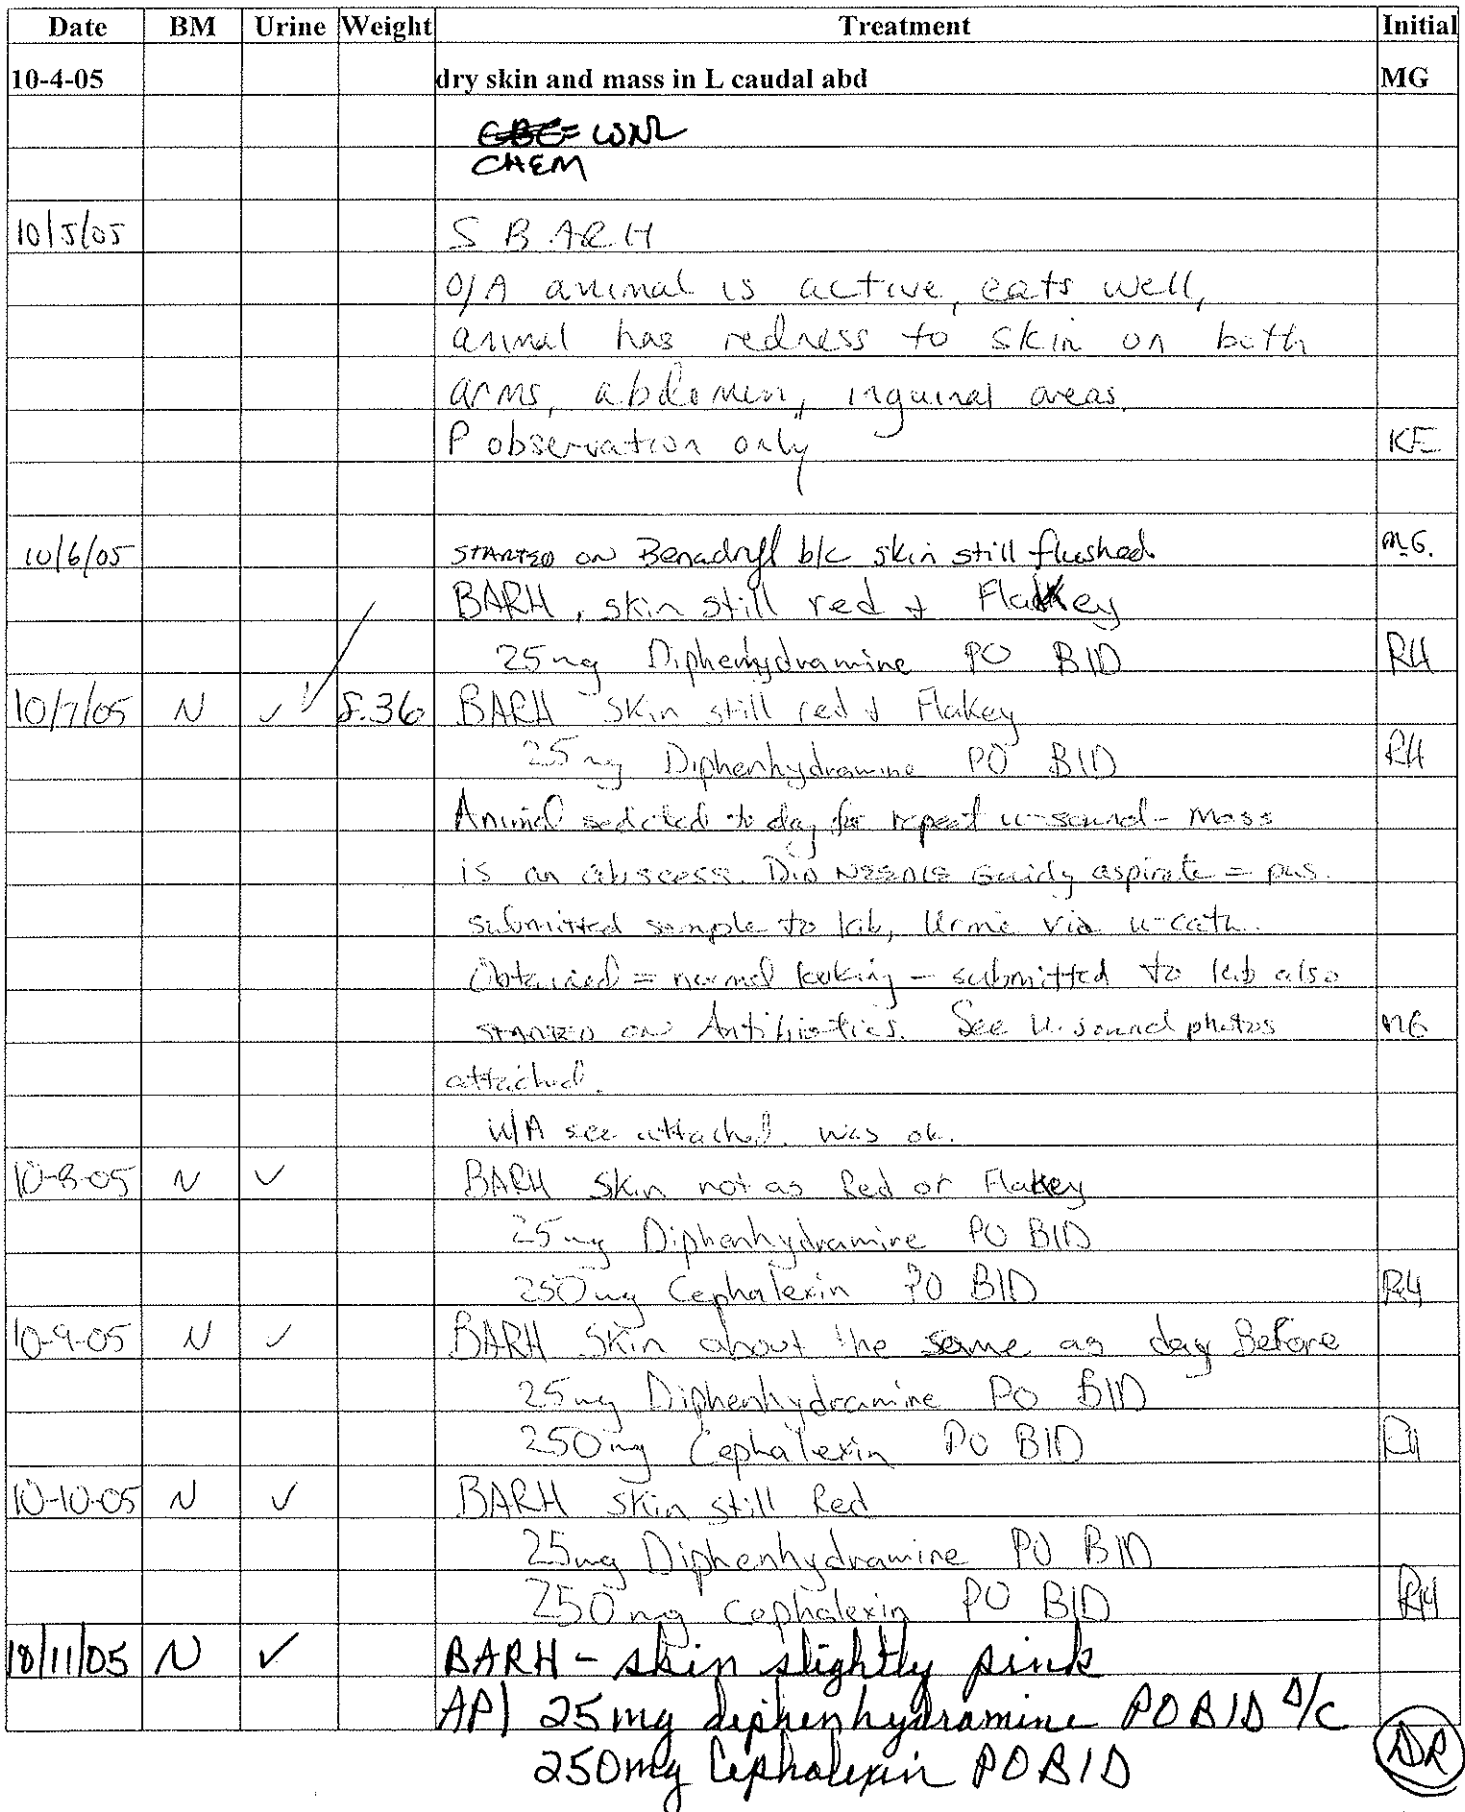 Date BM Urine Weight Treatment Initial
10-4-05 dry skin and mass in L caudal abd MG
CBC = WNL
CHEM
10/5/05 S BARH
O/A animal is active, eats well,
animal has redness to skin on both
arms, abdomen, inguinal areas.
P observation only KE
10/6/05 STARTED ON Benadryl b/c skin still flushed. MG.
BARH, skin still red + Flakey
25mg Diphenhydramine PO BID RH
10/7/05 N ✓ 8.36 BARH Skin still red + Flakey
25mg Diphenhydramine PO BID RH
Animal sedated today for repeat u-sound - mass
is an abscess. DID NEEDLE Guidy aspirate = pus.
submitted sample to lab, Urine via u-cath.
Obtained = normal looking - submitted to lab also
STARTED ON Antibiotics. See U.sound photos MG
attached.
U/A see attached. was ok.
10-8-05 N ✓ BARH Skin not as Red or Flakey
25mg Diphenhydramine PO BID
250mg Cephalexin PO BID RH
10-9-05 N ✓ BARH Skin about the same as day Before
25mg Diphenhydramine PO BID
250mg Cephalexin PO BID RH
10-10-05 N ✓ BARH skin still Red
25mg Diphenhydramine PO BID
250mg Cephalexin PO BID RH
10/11/05 N ✓ BARH - skin slightly pink
AP) 25mg diphenhydramine PO BID D/C
250mg Cephalexin PO BID DR